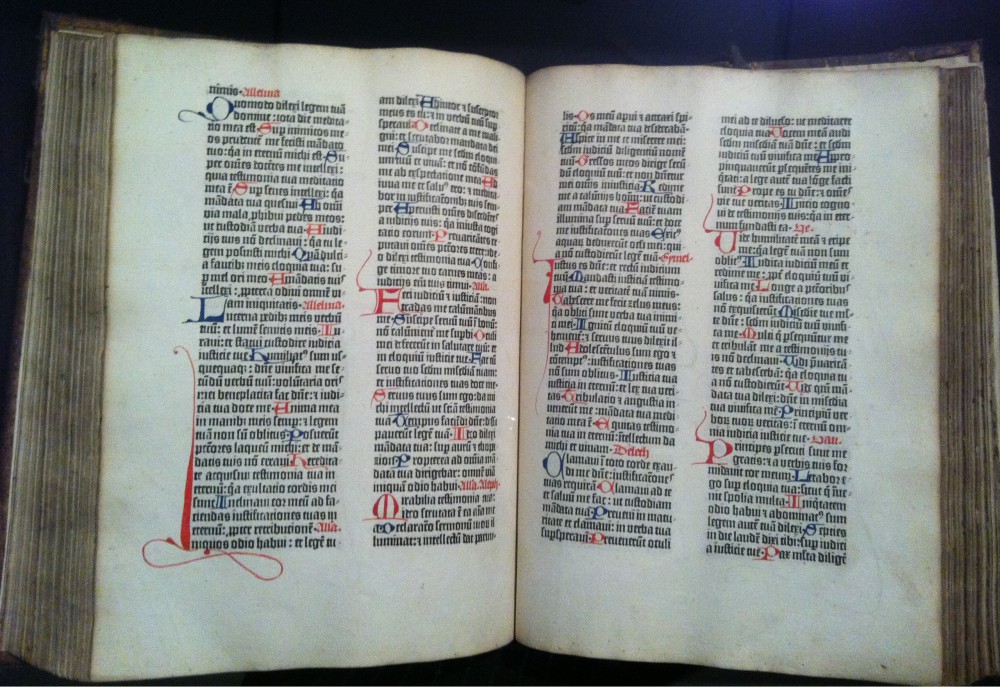 nimis. Alleluia
Quomodo dilexi legem tuā
domine : tota die medita-
tio mea est. Sup inimicos me-
os prudentē me fecisti mādato
tuo : q̄a in eternū michi est. Su-
per oēs docētes me intellexi :
quia testimonia tua meditatio
mea ē. Sup senes intellexi : q̄a
mādata tua quesiui. Ab omni
via mala phibui pedes meos :
ut custodiā verba tua. A iudi-
cijs tuis nō declinaui : q̄a tu le-
gem posuisti michi. Quā dulci-
a faucibi meis eloquia tua : su-
per mel ori meo. A mādatis tuis
intellexi : pptera odiui omnē vi-
am iniquitatis. Alleluia.
Lucerna pedibꝫ meis verbū
tuū : et lumē semitis meis. Iu-
raui : et statui custodire iudicia
iusticie tue. Humiliat9 sum us-
quequaqꝫ : dn̄e viuifica me se-
cūdū verbū tuū. Voluntaria oris
mei beneplacita fac dn̄e : et iudi-
cia tua doce me. Anima mea
in manibꝫ meis semp : et legem
tuam non sū oblitus. Posuerūt
pctōres laqueū michi : et de man-
datis tuis nō erraui. Heredita-
te acquisiui testimonia tua in
eternū : q̄a exultatio cordis mei
sunt. Inclinaui cor meū ad fa-
ciendas iustificationes tuas in
eternū : ppter retributionē. Alla.
Iniquos odio habui : et legē tu-
am dilexi. Adiutor ⁊ susceptor
meus es tu : et in verbū tuū
supsperaui. Declinate a me mali-
gni : et scrutabor mandata dei
mei. Suscipe me scdm eloqui-
um tuū et viuā : et nō cōfūdas
me ab expectatione mea. Ad-
iuua me et salu9 ero : et medita-
bor in iustificationibꝫ tuis sem-
per. Spreuisti omnes discedētes
a iudicijs tuis : q̄a iniusta cogi-
tatio eorum. Preuaricātes re-
putaui omēs peccatores terre : ide-
o dilexi testimonia tua. Confi-
ge timore tuo carnes meas : a
iudicijs em̄ tuis timui. Alla.
Feci iudiciū ⁊ iusticiā : non
tradas me calūniantibꝫ
me. Suscipe seruū tuū ī bonū :
nō calūnient̄ me supbi. Oculi
mei defecerūt in salutare tuū : et
in eloquiū iusticie tue. Fac cū
seruo tuo scdm miscdiā tuam :
et iustificationes tuas doce me.
Seruus tuus sum ego : da mi-
chi intellectū ut sciā testimonia
tua. Tempus faciēdi dn̄e : dissi-
pauerūt legē tuā. Ideo dilexi
mādata tua : sup aurū ⁊ thopa-
zion. Propterea ad omnia mā-
data tua dirigebar : omnē viā
iniquā odio habui. Alla. Aleph
Mirabilia testimonia tua :
ideo scrutata ē ea aīa mea.
Declaratio sermonū tuoꝝ il-
luminat : ⁊ intellectū dat paruu-
lis. Os meū apui ⁊ attraxi spi-
ritū : q̄a mādata tua desiderabā.
Aspice in me et miserere mei :
scdm iudiciū diligentiū nomē
tuū. Gressus meos dirige scdm
eloquiū tuū : et non dn̄etur
mei omnis iniusticia. Redime
me a calūnijs hoīm : ut custodi-
am mādata tua. Faciē tuam
illumina sup seruū tuū : et doce
me iustificationes tuas. Exit9
aquaꝝ deduxerūt ocli mei : qui-
a nō custodierūt legē tuā.
Iustus es dn̄e : et rectū iudicium
tuū. Mandasti iusticiā testimo-
nia tua : et veritatē tuā nimis.
Tabescere me fecit zelus meus :
q̄a obliti sunt verba tua inimi-
ci mei. Ignitū eloquiū tuū ve-
hementer : ⁊ seruus tuus dilexit il-
lud. Adolescētulus sum ego ⁊
contempt9 : iustificationes tuas
nō sum oblitus. Iusticia tua
iusticia in eternū : et lex tua veri-
tas. Tribulatio ⁊ angustia in-
uenerūt me : mādata tua medi-
tatio mea ē. Equitas testimo-
nia tua in eternū : ītellectum da
michi et viuam. Deleth
Clamaui ī toto corde exau-
di me dn̄e : iustificationes
tuas requirā. Clamaui ad te
et saluū me fac : ut custodiā mā-
data tua. Preueni in matu-
ritate et clamaui : in verba tua
supsperaui. Preuenerūt oculi
mei ad te diluclo : ut meditarer
eloquia tua. Vocem meā audi
scdm miscdiā tuam dn̄e : et scdm
iudiciū tuū viuifica me. Appro-
pinquauerūt psequētes me ini-
quitati : a lege autē tua lōge facti
sunt. Prope es tu dn̄e : et omēs
vie tue veritas. Initio cogno-
ui de testimonijs tuis : q̄a in eter-
num fundasti ea.
Vide humilitatē meā ⁊ eripe
me : q̄a legē tuā non sum
oblit9. Iudica iudiciū meū et
redime me : ppt̄ eloquiū tuū vi-
uifica me. Longe a pctōribus
salus : q̄a iustificationes tuas
nō exquisierūt. Miscdie tue mul-
te dn̄e : scdm iudiciū tuū viuifi-
ca me. Multi q̄ psequūtur me
et tribulāt me : a testimonijs tu-
is nō declinaui. Vidi p̄uaricā-
tes et tabescebā : q̄a eloquia tu-
a nō custodierūt. Vide qm̄ mā-
data tua dilexi : dn̄e in miscdia
tua viuifica me. Principiū ver-
boꝝ tuoꝝ veritas : ī eternū om-
nia iudicia iusticie tue.
Principes psecuti sunt me
gratis : ⁊ a verbis tuis for-
midauit cor meum. Letabor e-
go sup eloquia tua : sicut q̄ īue-
nit spolia multa. Iniq̄tatem
odio habui ⁊ abominat9 sum :
legem autē tuā dilexi. Septies
in die laudē dixi tibi : sup iudici-
a iusticie tue. Pax m̄lta diligē-